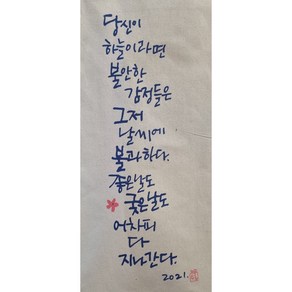 당신이
하늘이라면
불안한
감정들은
그저
날씨에
불과하다.
좋은날도
* 궂은날도
어차피
다
지나간다.
2021.